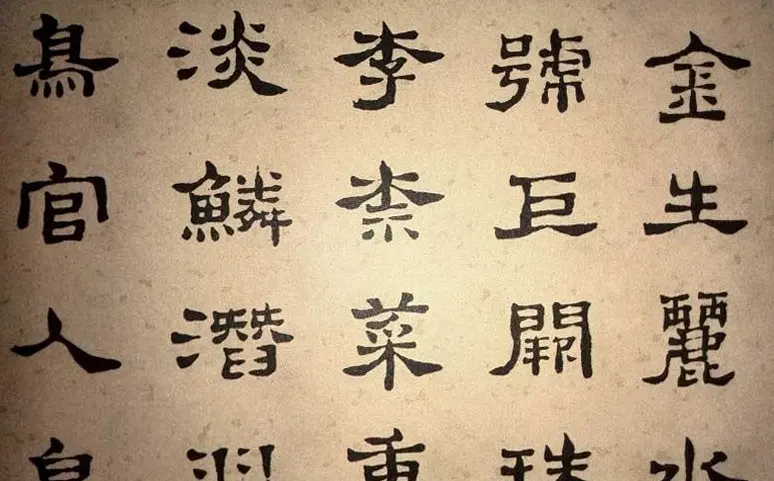 金生麗水
號巨闕珠
李柰菜重
淡鱗潛羽
鳥官人皇